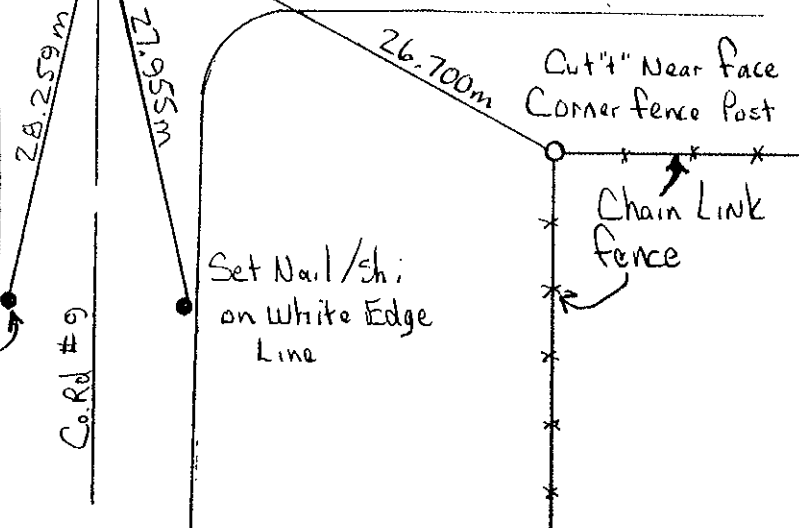 28.259m
27.955m
26.700m
Cut "t" Near face
Corner fence Post
Chain Link
fence
Set Nail/Shi
on White Edge
Line
Co. Rd #9